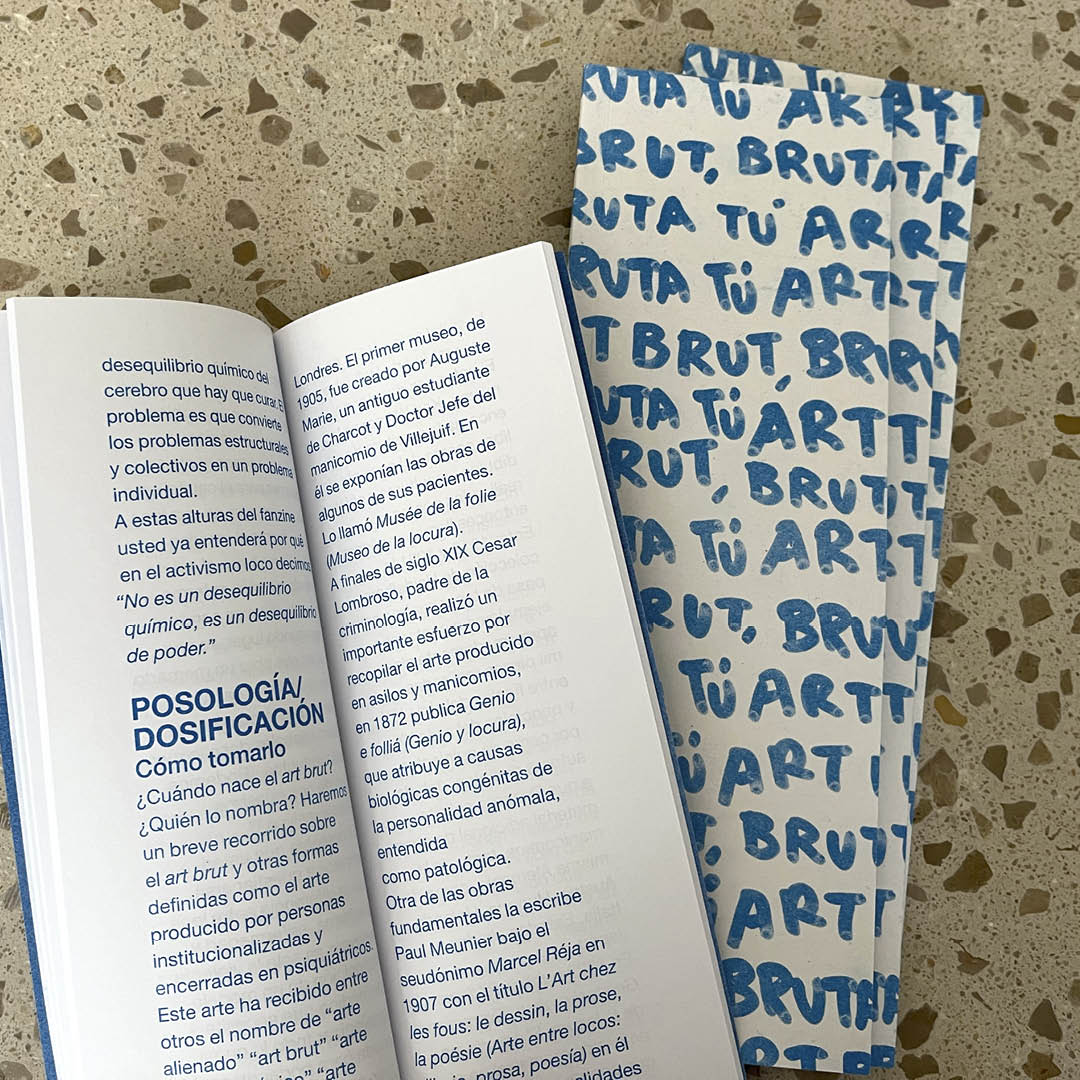 desequilibrio químico del
cerebro que hay que curar. El
problema es que convierte
los problemas estructurales
y colectivos en un problema
individual.
A estas alturas del fanzine
usted ya entenderá por qué
en el activismo loco decimos
“No es un desequilibrio
químico, es un desequilibrio
de poder.”
POSOLOGÍA/
DOSIFICACIÓN
Cómo tomarlo
¿Cuándo nace el art brut?
¿Quién lo nombra? Haremos
un breve recorrido sobre
el art brut y otras formas
definidas como el arte
producido por personas
institucionalizadas y
encerradas en psiquiátricos.
Este arte ha recibido entre
otros el nombre de “arte
alienado” “art brut” “arte
“arte
Londres. El primer museo, de
1905, fue creado por Auguste
Marie, un antiguo estudiante
de Charcot y Doctor Jefe del
manicomio de Villejuif. En
él se exponían las obras de
algunos de sus pacientes.
Lo llamó Musée de la folie
(Museo de la locura).
A finales de siglo XIX Cesar
Lombroso, padre de la
criminología, realizó un
importante esfuerzo por
recopilar el arte producido
en asilos y manicomios,
en 1872 publica Genio
e folliá (Genio y locura),
que atribuye a causas
biológicas congénitas de
la personalidad anómala,
entendida
como patológica.
Otra de las obras
fundamentales la escribe
Paul Meunier bajo el
seudónimo Marcel Réja en
1907 con el título L’Art chez
les fous: le dessin, la prose,
la poésie (Arte entre locos:
prosa, poesía) en él
RUTA TÚ AR
BRUT, BRUTA
RUTA TÚ AR
RUTA TÚ ART
T BRUT, BRU
UTA TÚ ART
RUT, BRUT
TA TÚ ART
RUT, BRU
TÚ ART
ÚART
BRUT
ART
BRUTA
ART B